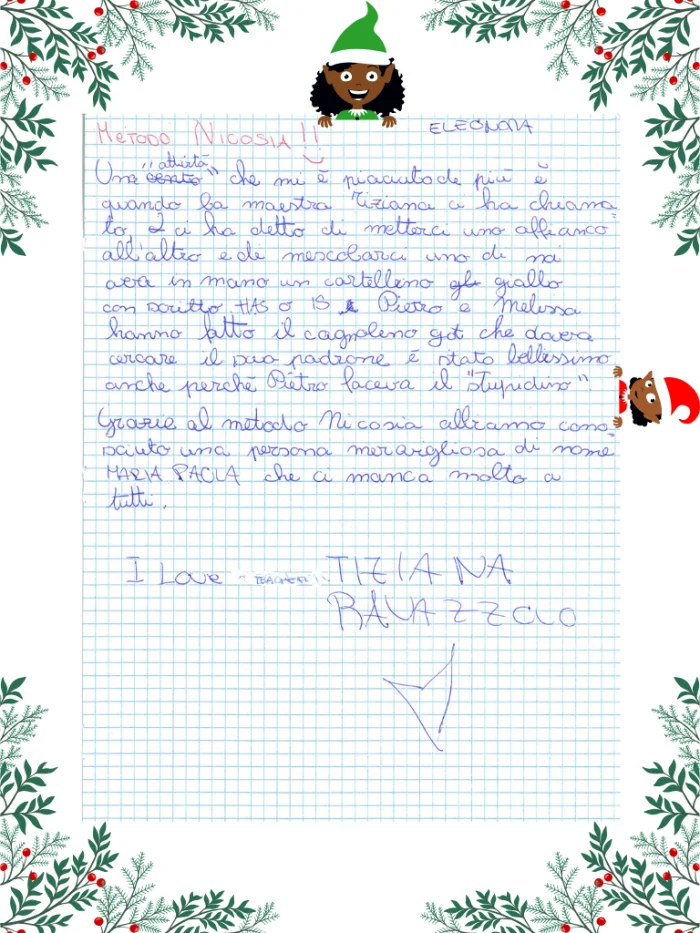 METODO NICOSIA!!
ELEONORA
"attività"
Una cento che mi è piaciuto de più è
quando la maestra Tiziana ci ha chiama
to, 2 ci ha detto di metterci uno affianco
all'altro e di mescolarci uno di noi
aveva in mano un cartelleno gl giallo
con scritto HAS o IS e Pietro e Melissa
hanno fatto il cagnoleno got che doveva
cercare il suo padrone è stato bellissimo
anche perché Pietro faceva il "stupidino"
Grazie al metodo Nicosia abbiamo cono-
sciuto una persona meravigliosa di nome
MARIA PAOLA che ci manca molto a
tutti.
I Love TEACHER TIZIANA
RAVAZZOLO